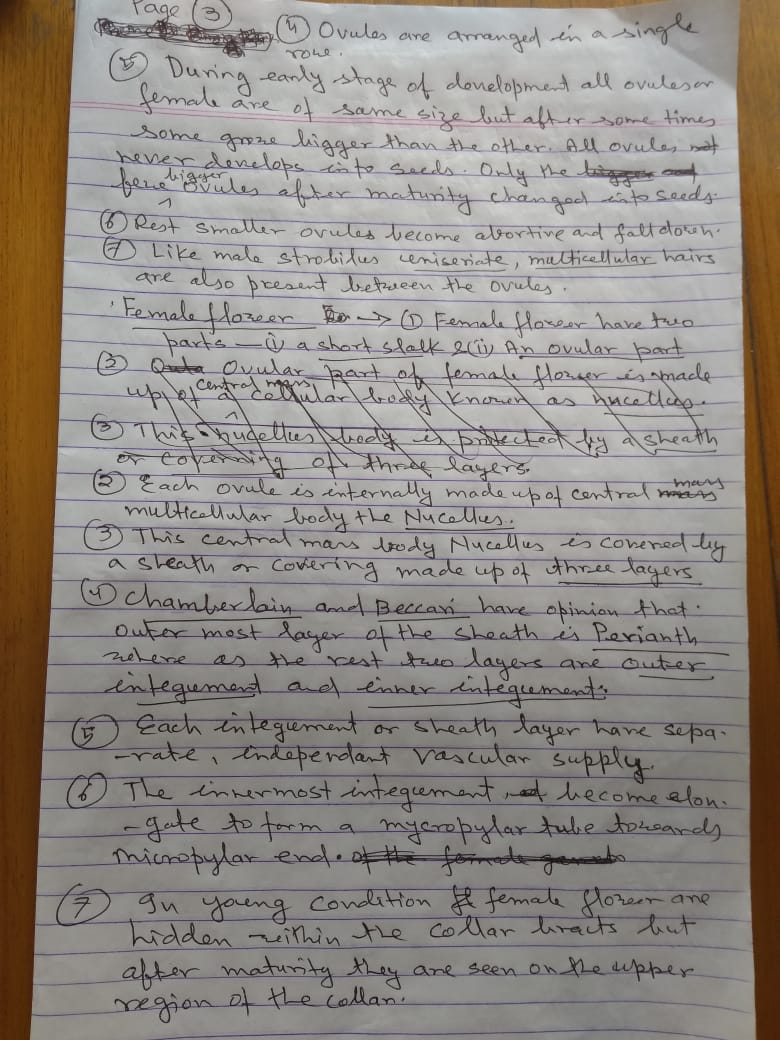 Page (3)
(4) Ovules are arranged in a single
rowe.
(5) During early stage of development all ovules or
female are of same size but after some times
some grow bigger than the other. All ovules not
never develops into seeds. Only the bigger and
few bigger ovules after maturity changed into seeds.
(6) Rest smaller ovules become abortive and fall down.
(7) Like male strobilus uniseriate, multicellular hairs
are also present between the ovules.
Female flower → (1) Female flower have two
parts – (i) a short stalk & (ii) An ovular part
(2) Ovular part of female flower is made
up of a central mass cellular body known as nucellus.
(3) This nucellus body is protected by a sheath
or coverning of three layers.
(2) Each ovule is internally made up of central mass
multicellular body the Nucellus.
(3) This central mass body Nucellus is covered by
a sheath or covering made up of three layers
(4) Chamberlain and Beccari have opinion that
outer most layer of the sheath is Perianth
where as the rest two layers are outer
integument and inner integument.
(5) Each integument or sheath layer have sepa-
-rate, independant vascular supply.
(6) The innermost integument, become elon-
-gate to form a mycropylar tube towards
micropylar end. of the female gameto
(7) In young condition female flower are
hidden within the collar bracts but
after maturity they are seen on the upper
region of the collar.